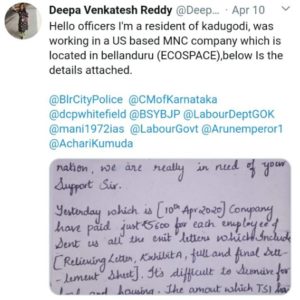 Deepa Venkatesh Reddy @Deep... · Apr 10
Hello officers I'm a resident of kadugodi, was
working in a US based MNC company which is
located in bellanduru (ECOSPACE),below Is the
details attached.
@BlrCityPolice @CMofKarnataka
@dcpwhitefield @BSYBJP @LabourDeptGOK
@mani1972ias @LabourGovt @Arunemperor1
@AchariKumuda
nation, we are really in need of your
Support Sir.
Yesterday which is [10th Apr2020] Company
have paid just ₹5600 for each employee &
Sent us all the exit letters which Include
[Relieving Letter, Exhibit A, full and final Sett-
-lement Sheet]. It's difficult to Survive for
and housing. The amount which TSI has